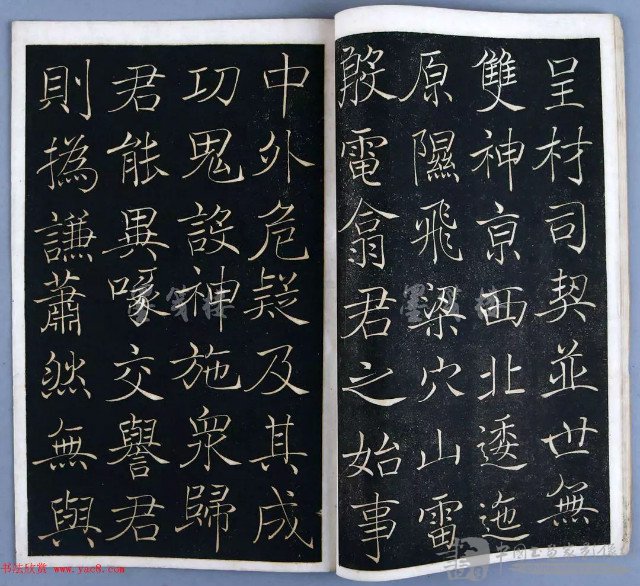 呈材司契並世無
雙神亰西北逶迤
原隰飛梁穴山雷
殷電翕君之始事
中外危疑及其成
功鬼設神施衆歸
君能異喙交譽君
則撝謙蕭然無與
书法欣赏 www.yac8.com